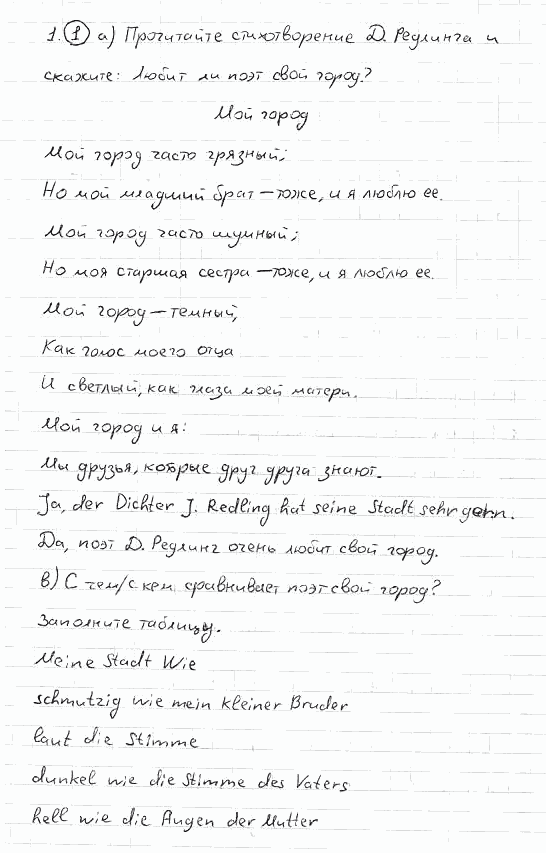 1. ① а) Прочитайте стихотворение Д. Редлинга и
скажите: Любит ли поэт свой город?
Мой город
Мой город часто грязный;
Но мой младший брат – тоже, и я люблю ее.
Мой город часто шумный;
Но моя старшая сестра – тоже, и я люблю ее.
Мой город – темный,
Как голос моего отца
И светлый, как глаза моей матери.
Мой город и я:
Мы друзья, которые друг друга знают.
Ja, der Dichter J. Redling hat seine Stadt sehr gern.
Да, поэт Д. Редлинг очень любит свой город.
в) С чем/с кем сравнивает поэт свой город?
Заполните таблицу.
Meine Stadt Wie
schmutzig wie mein kleiner Bruder
laut die Stimme
dunkel wie die Stimme des Vaters
hell wie die Augen der Mutter